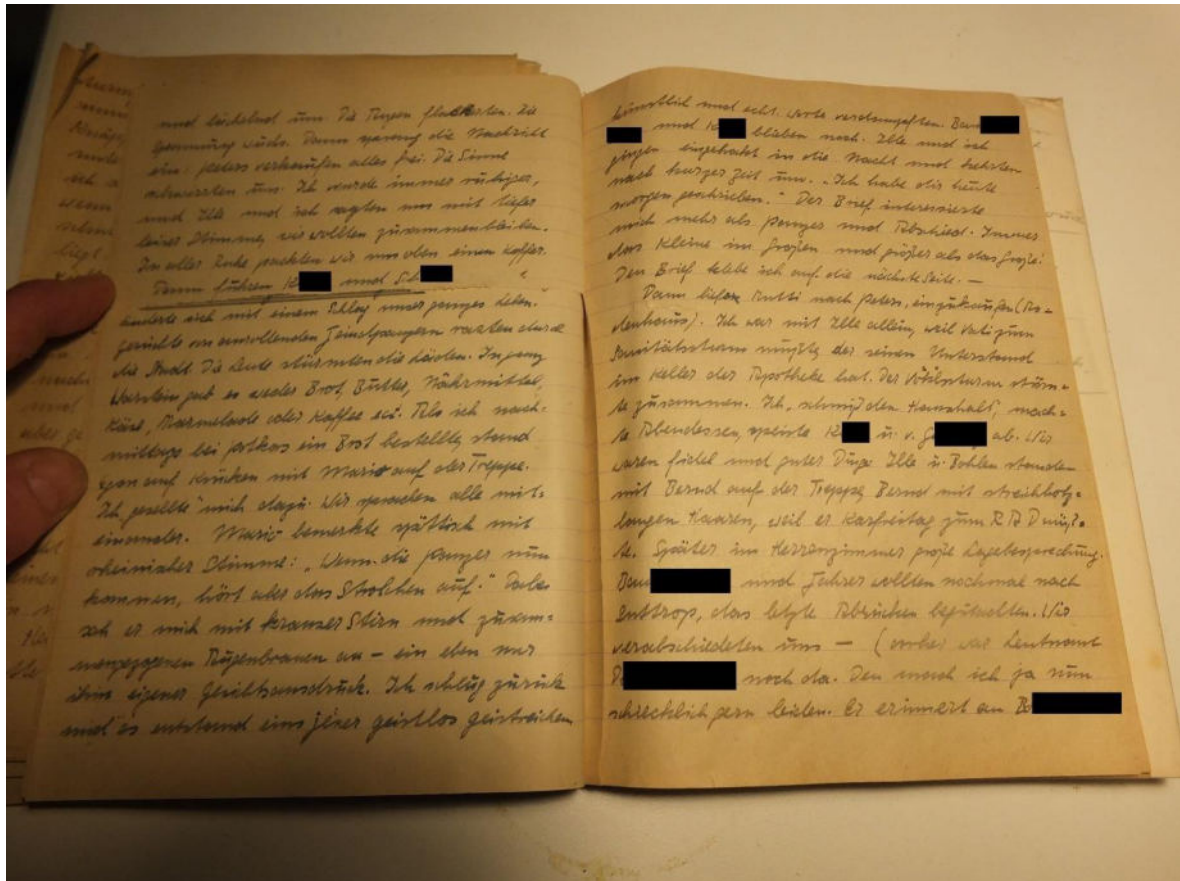 und lächelnd um. Die Augen flackerten. Die
Spannung wuchs. Dann sprang die Nachricht
ein: Peters verkaufen alles frei. Die Sinne
uns. Ich wurde immer ruhiger,
und Ille und ich sagten uns mit tiefer
leiser Stimme, wir wollten zusammenbleiben.
In aller Ruhe packten wir uns oben einen Koffer.
Dann fuhren K und Sch
änderte sich mit einem Schlag unser ganzes Leben.
Gerüchte von anrollenden Feindpanzern rasten durch
die Stadt. Die Leute stürmten die Läden. In ganz
gab es weder Brot, Butter, Nährmittel,
Käse, Marmelade oder Kaffee ect. Als ich nach-
mittags bei ein Brot bestellte, stand
auf Krücken mit Mario auf der Treppe.
Ich gesellte mich dazu. Wir sprachen alle mit-
einander. Mario bemerkte spöttisch mit
Stimme: „Wenn die Panzer nun
kommen, hört aber das Strolchen auf." Dabei
sah er mich mit krauser Stirn und zusam-
mengezogenen Augenbrauen an – ein eben nur
ihm eigener Gesichtsausdruck. Ich schlug zurück
und es entstand eins jener geistlos geistreichen
künstlich und echt. Worte verdampften. Bau
und K blieben noch. Ille und ich
gingen eingehakt in die Nacht und kehrten
nach kurzer Zeit um. „Ich habe dir heute
morgen geschrieben." Der Brief interessierte
mich mehr als Panzer und Abschied. Immer
das Kleine im Großen und größer als das Große!
Den Brief klebe ich auf die nächste Seite. —
Dann liefen Mutti nach Peters, einzukaufen (
). Ich war mit Ille allein, weil Vati zum
Sanitätssturm mußte, der seinen Unterstand
im Keller der Apotheke hat. Der Volkssturm ström-
te zusammen. Ich „schmiß den Haushalt", mach-
te Abendessen, speiste K u. v. G ab. Wir
waren fidel und guter Dinge. Ille u. Bohlen standen
mit Bernd auf der Treppe, Bernd mit streichholz-
langen Haaren, weil er Karfreitag zum R A D muß-
te. Später im Herrenzimmer große Lagebesprechung.
Bau und Fahrer wollten nochmal nach
das letzte Abrücken begutachten. Wir
verabschiedeten uns — (vorher war Leutnant
noch da. Den mach ich ja nun
schrecklich gern leiden. Er erinnert an B